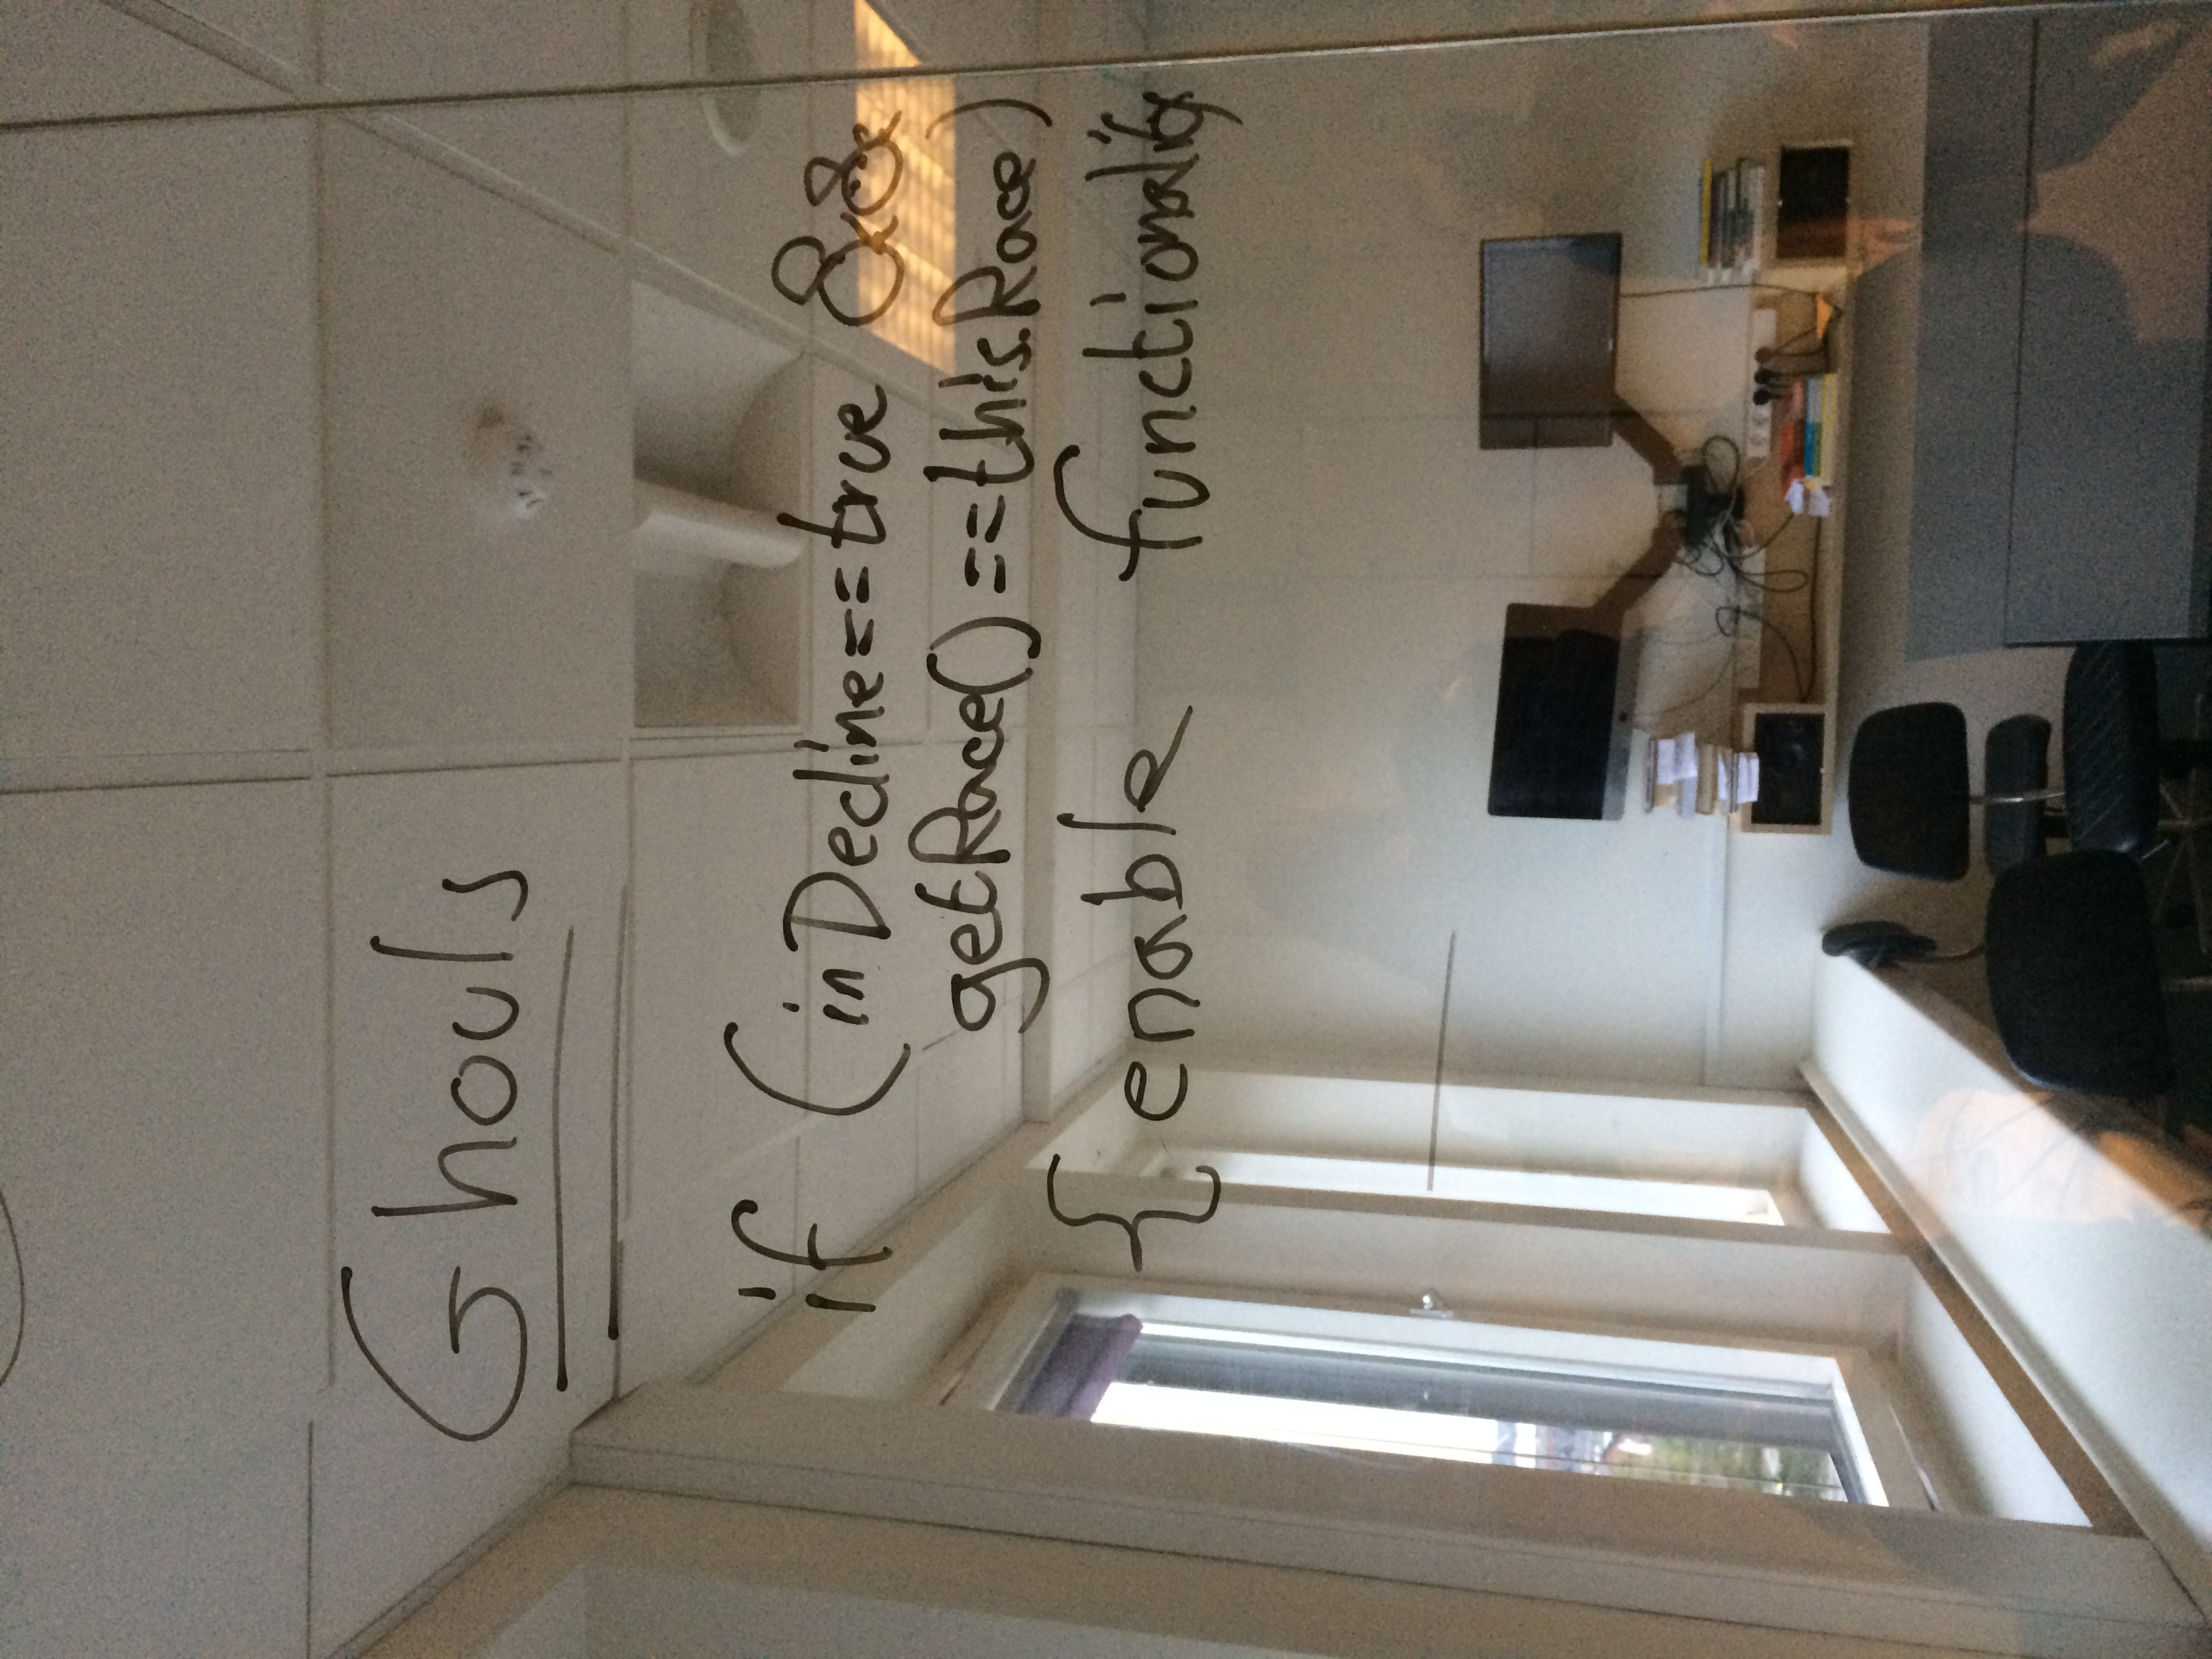 Ghouls
if (inDecline==true &&
getRace()==this.Race)
{enable functionality